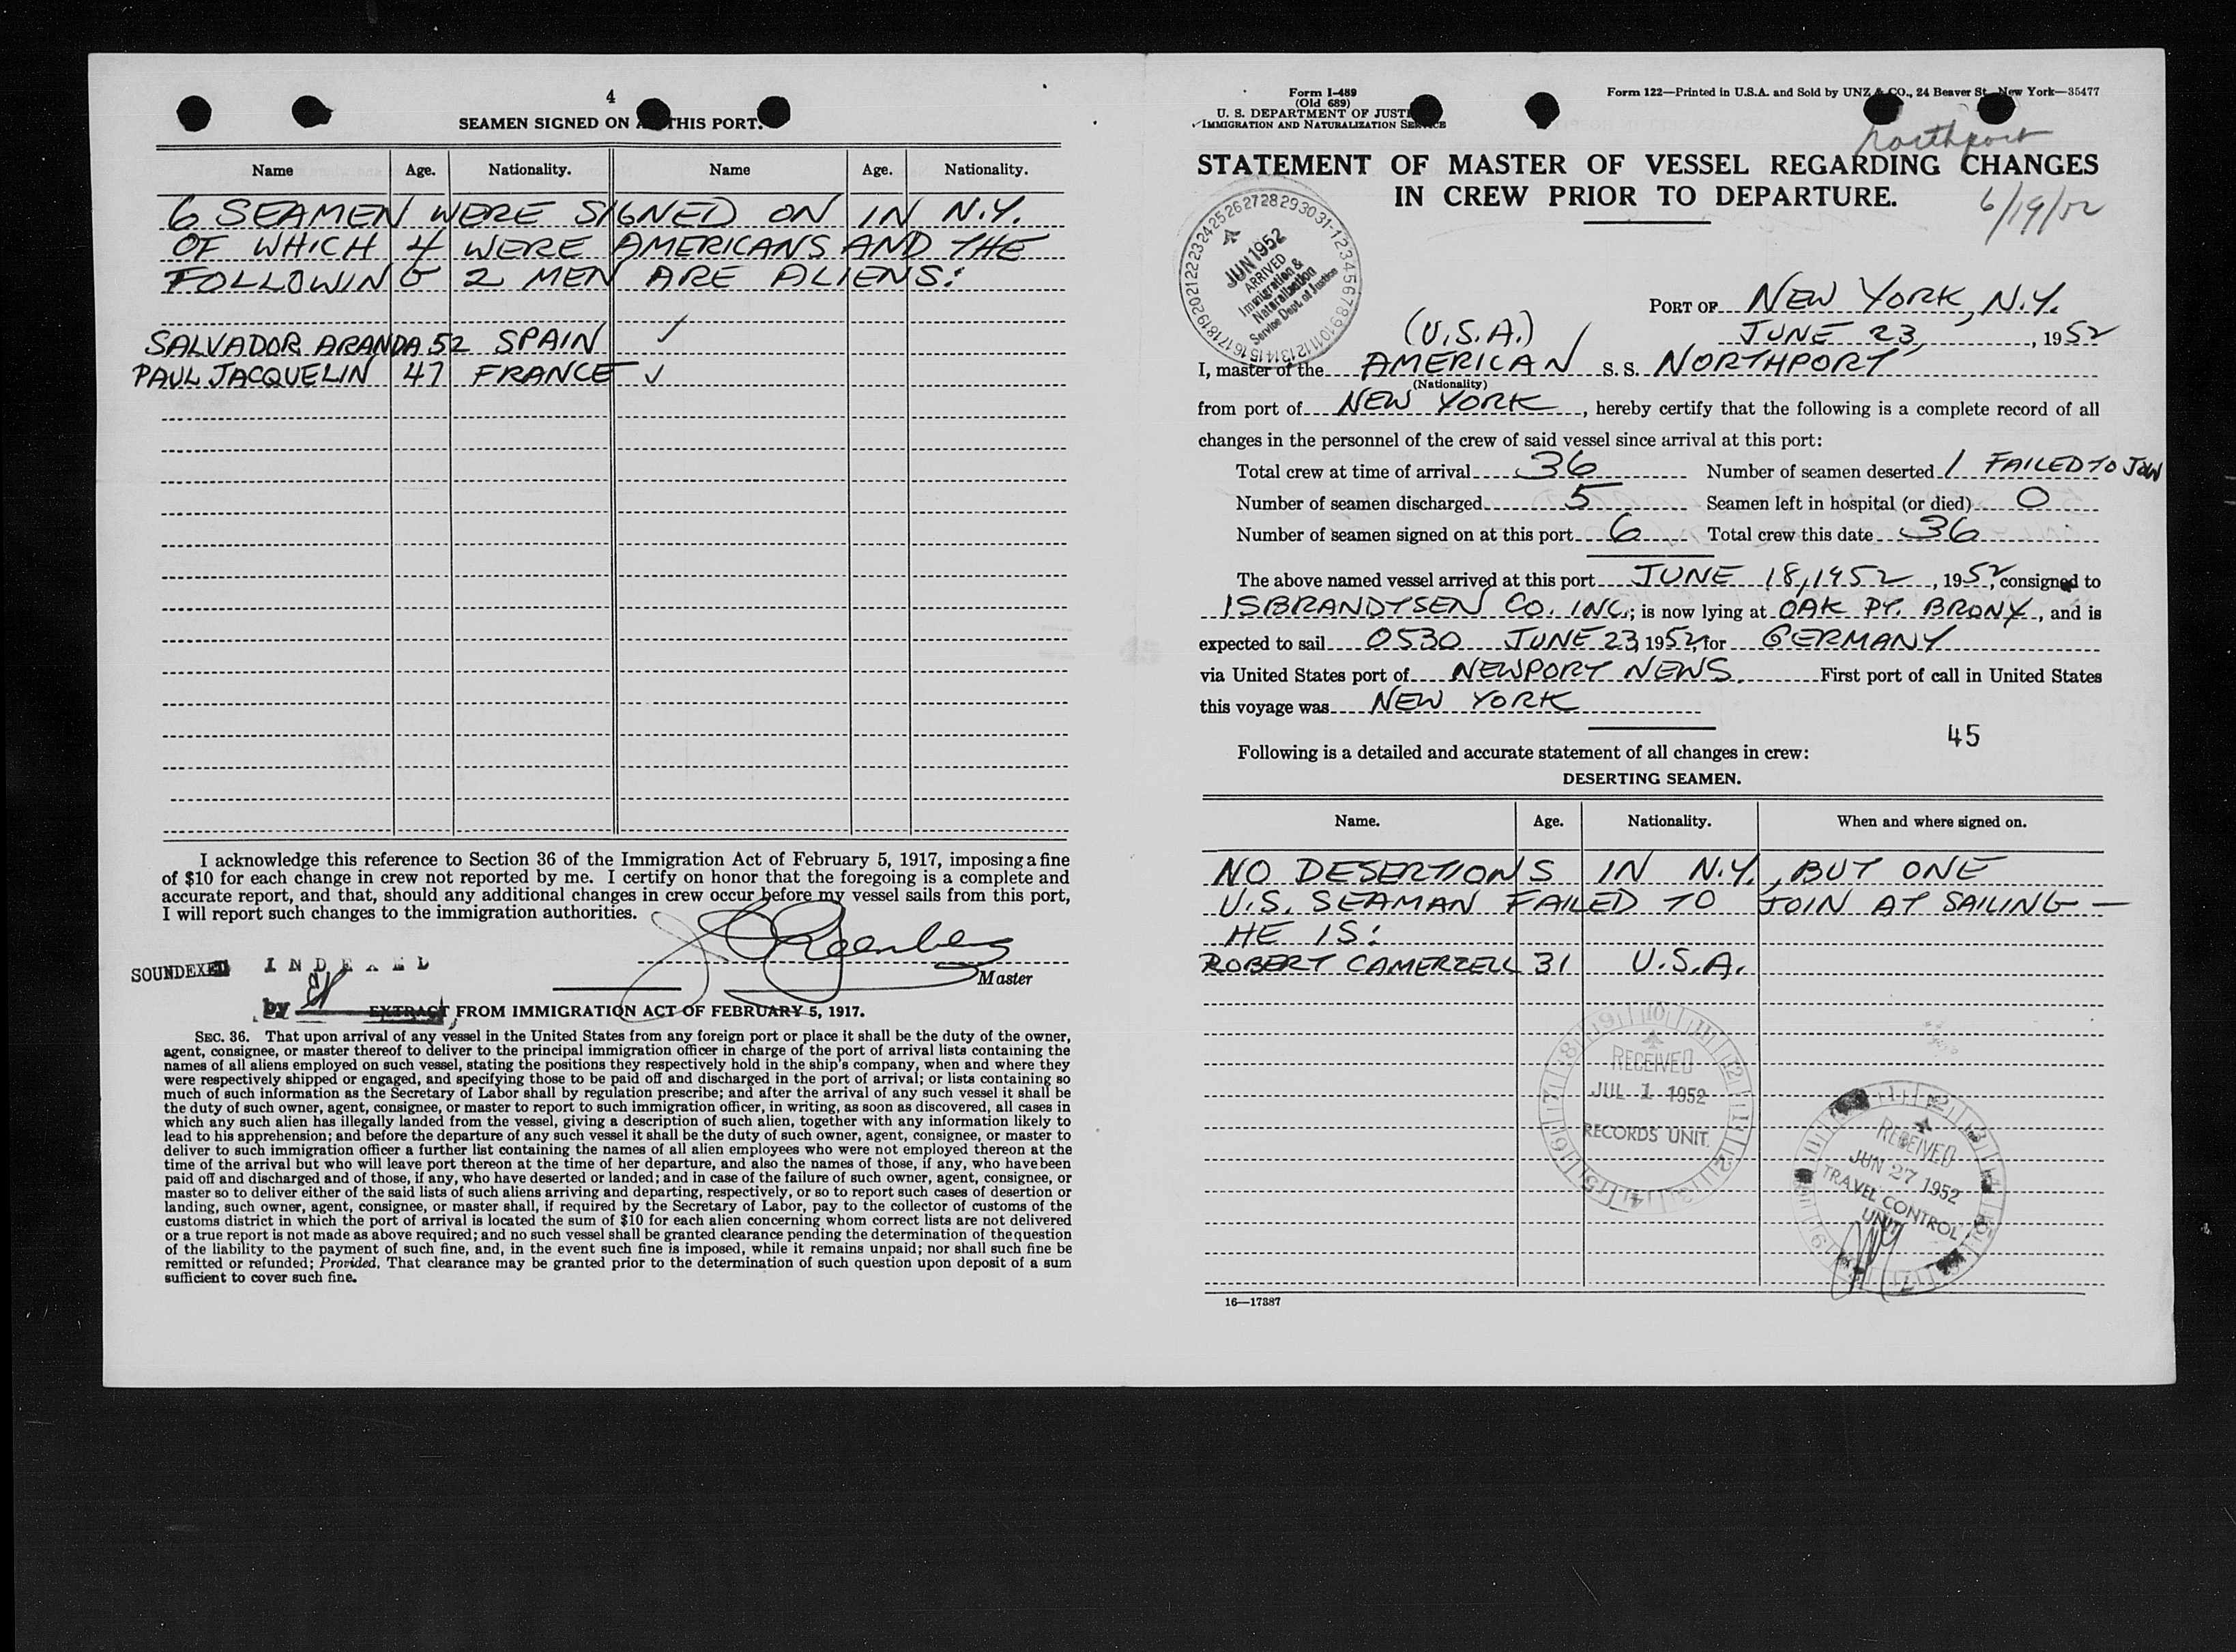 4
SEAMEN SIGNED ON THIS PORT.
Name Age. Nationality. Name Age. Nationality.
6 SEAMEN WERE SIGNED ON IN N.Y.
OF WHICH 4 WERE AMERICANS AND THE
FOLLOWING 2 MEN ARE ALIENS:
SALVADOR ARANDA 52 SPAIN ✓
PAUL JACQUELIN 47 FRANCE ✓
I acknowledge this reference to Section 36 of the Immigration Act of February 5, 1917, imposing a fine
of $10 for each change in crew not reported by me. I certify on honor that the foregoing is a complete and
accurate report, and that, should any additional changes in crew occur before my vessel sails from this port,
I will report such changes to the immigration authorities.
Master
SOUNDEXED INDEXED
by
EXTRACT FROM IMMIGRATION ACT OF FEBRUARY 5, 1917.
SEC. 36. That upon arrival of any vessel in the United States from any foreign port or place it shall be the duty of the owner,
agent, consignee, or master thereof to deliver to the principal immigration officer in charge of the port of arrival lists containing the
names of all aliens employed on such vessel, stating the positions they respectively hold in the ship's company, when and where they
were respectively shipped or engaged, and specifying those to be paid off and discharged in the port of arrival; or lists containing so
much of such information as the Secretary of Labor shall by regulation prescribe; and after the arrival of any such vessel it shall be
the duty of such owner, agent, consignee, or master to report to such immigration officer, in writing, as soon as discovered, all cases in
which any such alien has illegally landed from the vessel, giving a description of such alien, together with any information likely to
lead to his apprehension; and before the departure of any such vessel it shall be the duty of such owner, agent, consignee, or master to
deliver to such immigration officer a further list containing the names of all alien employees who were not employed thereon at the
time of the arrival but who will leave port thereon at the time of her departure, and also the names of those, if any, who have been
paid off and discharged and of those, if any, who have deserted or landed; and in case of the failure of such owner, agent, consignee, or
master so to deliver either of the said lists of such aliens arriving and departing, respectively, or so to report such cases of desertion or
landing, such owner, agent, consignee, or master shall, if required by the Secretary of Labor, pay to the collector of customs of the
customs district in which the port of arrival is located the sum of $10 for each alien concerning whom correct lists are not delivered
or a true report is not made as above required; and no such vessel shall be granted clearance pending the determination of the question
of the liability to the payment of such fine, and, in the event such fine is imposed, while it remains unpaid; nor shall such fine be
remitted or refunded; Provided, That clearance may be granted prior to the determination of such question upon deposit of a sum
sufficient to cover such fine.
Form I-489
(Old 689)
U. S. DEPARTMENT OF JUSTICE
IMMIGRATION AND NATURALIZATION SERVICE
Form 122—Printed in U.S.A. and Sold by UNZ & CO., 24 Beaver St., New York—35477
Northport
STATEMENT OF MASTER OF VESSEL REGARDING CHANGES
IN CREW PRIOR TO DEPARTURE.
6/19/52
JUN 1952
ARRIVED
Immigration &
Naturalization
Service Dept. of Justice
PORT OF NEW YORK, N.Y.
JUNE 23, 1952
(U.S.A.)
I, master of the AMERICAN S. S. NORTHPORT
(Nationality)
from port of NEW YORK, hereby certify that the following is a complete record of all
changes in the personnel of the crew of said vessel since arrival at this port:
Total crew at time of arrival 36 Number of seamen deserted 1 FAILED TO JOIN
Number of seamen discharged 5 Seamen left in hospital (or died) 0
Number of seamen signed on at this port 6 Total crew this date 36
The above named vessel arrived at this port JUNE 18, 1952, 1952, consigned to
ISBRANDTSEN CO. INC.; is now lying at OAK PT. BRONX, and is
expected to sail 0530 JUNE 23, 1952, for GERMANY
via United States port of NEWPORT NEWS. First port of call in United States
this voyage was NEW YORK
45
Following is a detailed and accurate statement of all changes in crew:
DESERTING SEAMEN.
Name. Age. Nationality. When and where signed on.
NO DESERTIONS IN N.Y., BUT ONE
U.S. SEAMAN FAILED TO JOIN AT SAILING —
HE IS:
ROBERT CAMERZELL 31 U.S.A.
RECEIVED
JUL 1 1952
RECORDS UNIT
RECEIVED
JUN 27 1952
TRAVEL CONTROL
UNIT
16—17387